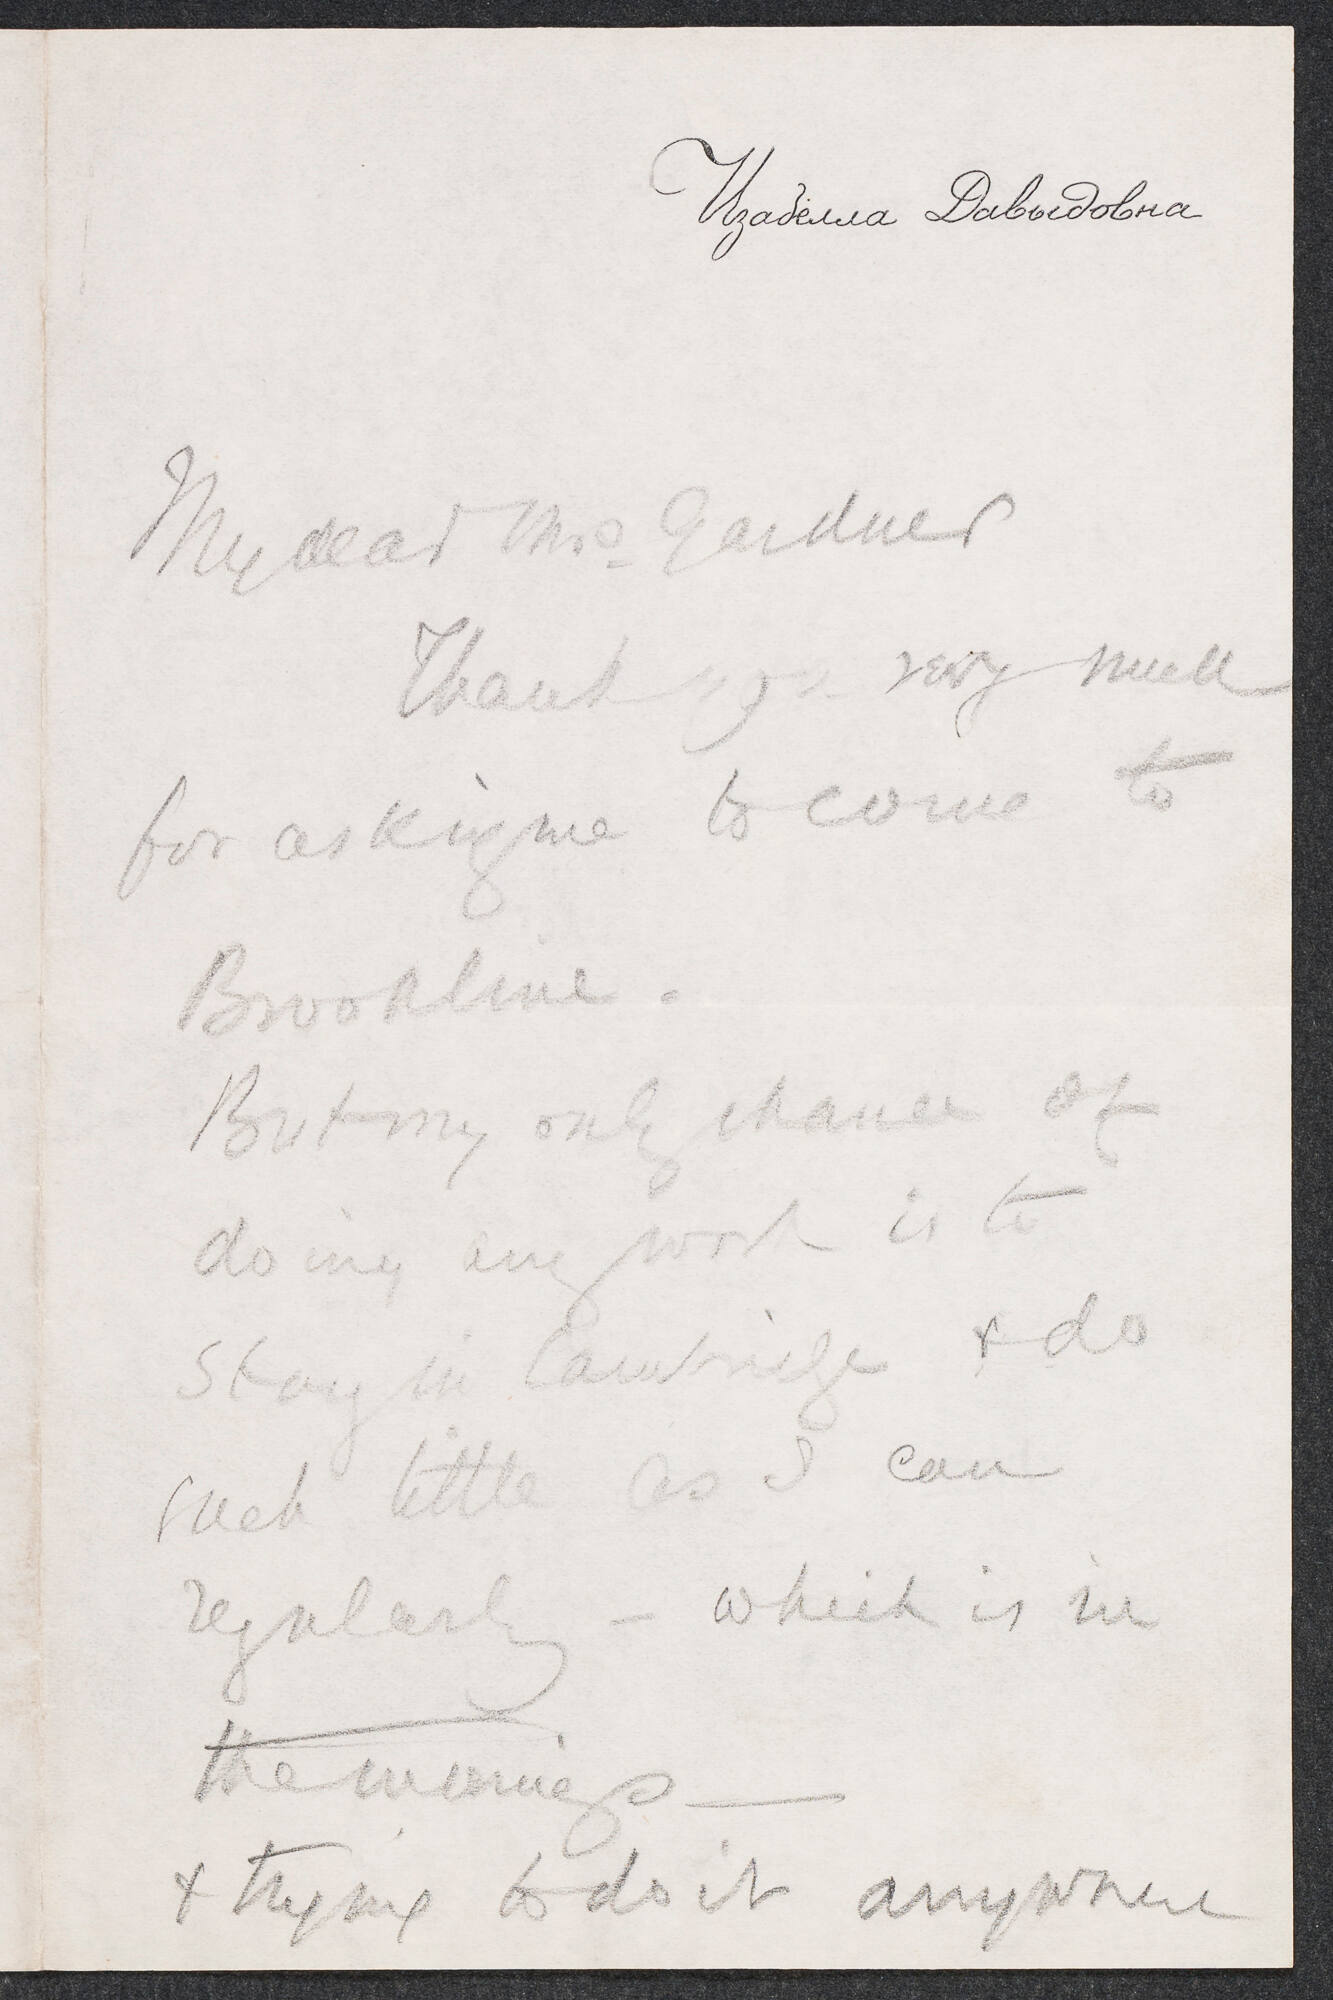 Изабелла Давыдовна
My dear Mrs. Gardner
Thank you very much
for asking me to come to
Brookline.
But my only chance of
doing any work is to
stay in Cambridge + do
such little as I can
regularly – which is in
the mornings —
+ trying to do it anywhere